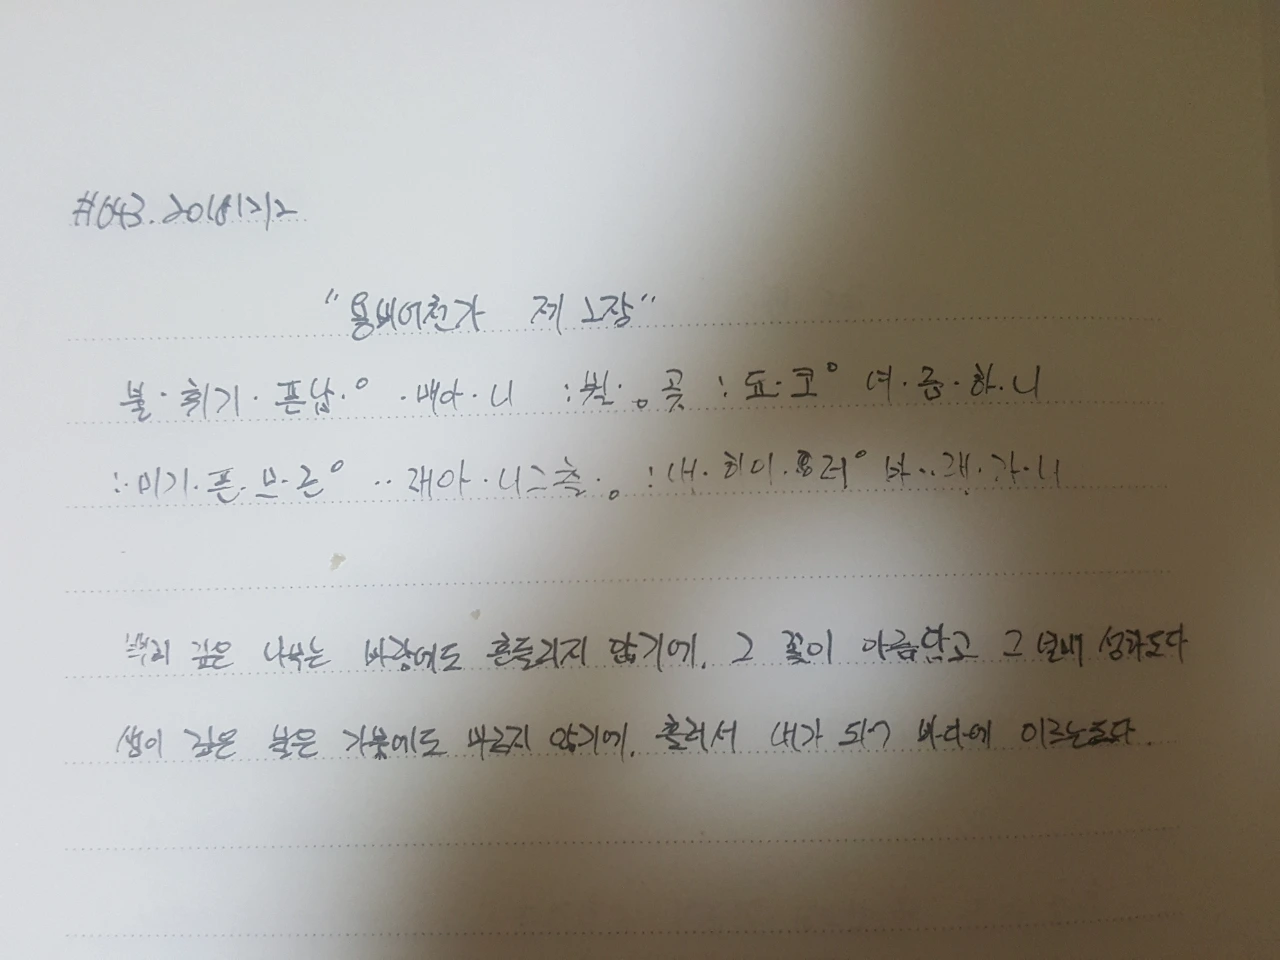 #643. 20181212
"용비어천가 제 2장"
불·휘기·픈남·ᄋ ·배아·니 :뮐·ᄊᆡ。곶 :됴·코° 여·름·하·니
:미기·픈·므·른° ··래아·니그츨·。 :내·히이·르러° 바··래·가·니
뿌리 깊은 나무는 바람에도 흔들리지 않기에, 그 꽃이 아름답고 그 열매 성하도다
샘이 깊은 물은 가뭄에도 마르지 않기에, 흘러서 내가 되어 바다에 이르는도다.